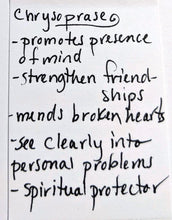 Chrysoprase
-promotes presence
of mind
-strengthen friend-
ships
-mends broken hearts
-see clearly into
personal problems
-spiritual protector